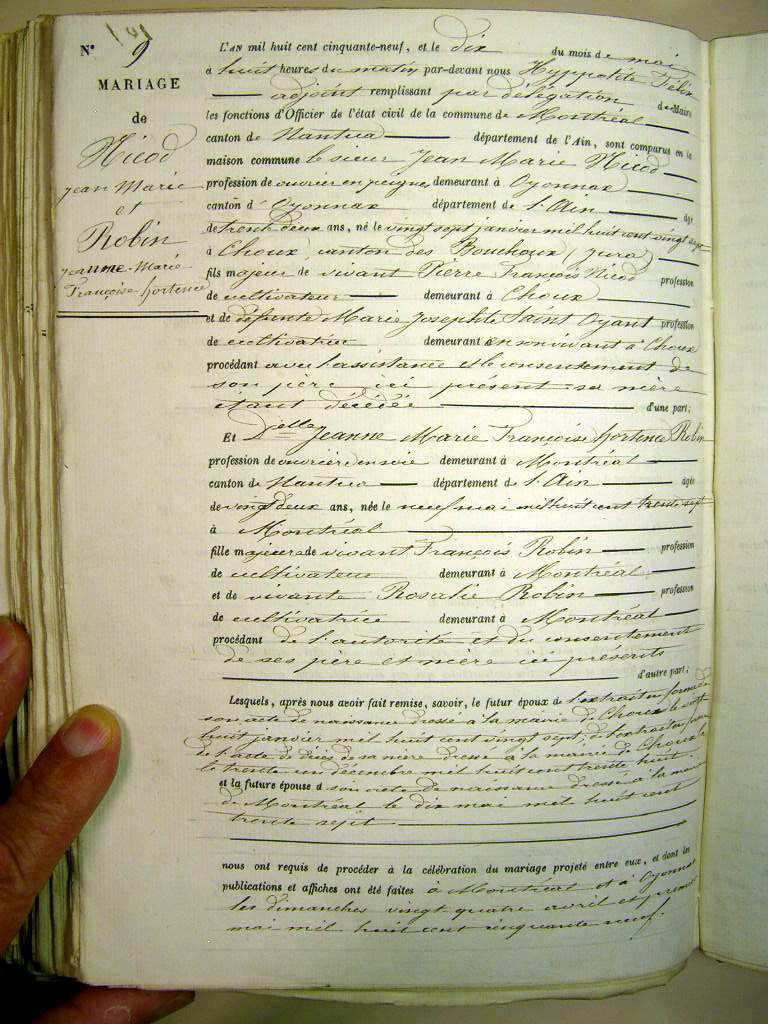 N° 9
MARIAGE
de
Nicod
Jean Marie
et
Robin
Jeanne-Marie
Françoise-hortence
L'AN mil huit cent cinquante-neuf, et le dix du mois de mai
à huit heures du matin par-devant nous Hyppolite Félix
adjoint remplissant par délégation de Maire
les fonctions d'Officier de l'état civil de la commune de Montréal
canton de Nantua département de l'Ain, sont comparus en la
maison commune le sieur Jean Marie Nicod
profession de ouvrier en peignes demeurant à Oyonnax
canton d'Oyonnax département de l'Ain âgé
de trente deux ans, né le vingt sept janvier mil huit cent vingt sept
à Choux, canton des Bouchoux (Jura)
fils majeur de vivant Pierre François Nicod profession
de cultivateur demeurant à Choux
et de défunte Marie Josephte Saint Oyant profession
de cultivatrice demeurant en son vivant à Choux
procédant avec l'assistance et le consentement de
son père ici présent sa mère
étant décédée d'une part;
Et Delle Jeanne Marie Françoise hortence Robin
profession de ouvrière en soie demeurant à Montréal
canton de Nantua département de l'Ain âgée
de vingt deux ans, née le neuf mai mil huit cent trente sept
à Montréal
fille majeure de vivant François Robin profession
de cultivateur demeurant à Montréal
et de vivante Rosalie Robin profession
de cultivatrice demeurant à Montréal
procédant de l'autorité et du consentement
de ses père et mère ici présents
d'autre part;
Lesquels, après nous avoir fait remise, savoir, le futur époux de l'extrait en forme de
son acte de naissance dressé à la mairie de Choux le vingt
huit janvier mil huit cent vingt sept; de l'extrait en forme
de l'acte de décès de sa mère dressé à la mairie de Choux
le trente un décembre mil huit cent trente huit
et la future épouse d son acte de naissance dressé à la mairie
de Montréal le dix mai mil huit cent
trente sept
nous ont requis de procéder à la célébration du mariage projeté entre eux, et dont les
publications et affiches ont été faites à Montréal et à Oyonnax
les dimanches vingt quatre avril et premier
mai mil huit cent cinquante neuf.